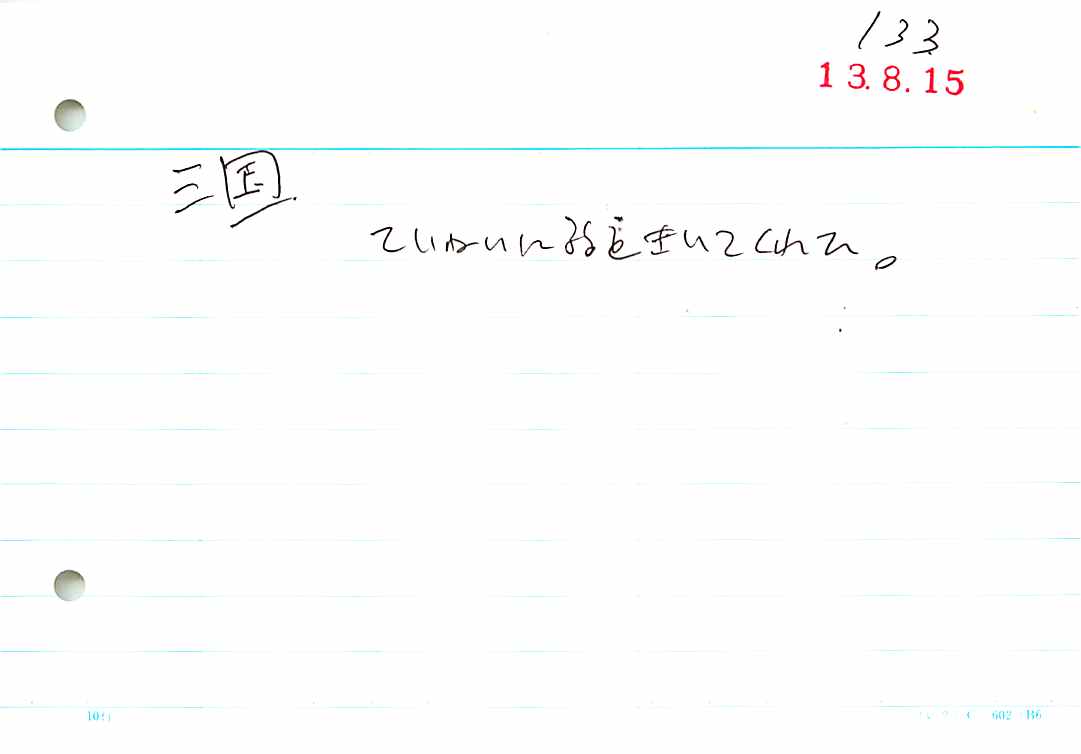 133
13.8.15
三国
ていねいに話をきいてくれた。
602 B6